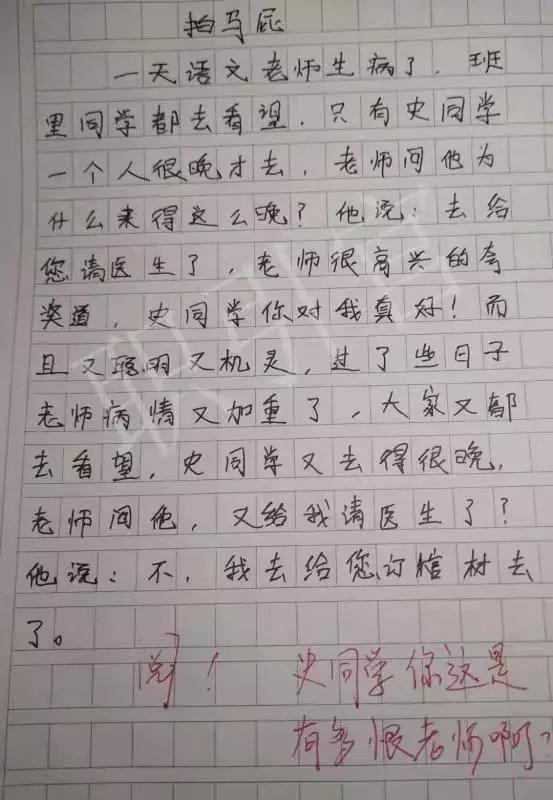 拍马屁
一天语文老师生病了．班
里同学都去看望．只有史同学
一个人很晚才去，老师问他为
什么来得这么晚？他说：去给
您请医生了，老师很高兴的夸
奖道，史同学你对我真好！而
且又聪明又机灵，过了些日子
老师病情又加重了，大家又都
去看望，史同学又去得很晚，
老师问他，又给我请医生了？
他说：不，我去给您订棺材去
了。
阅！ 史同学你这是
有多恨老师啊？